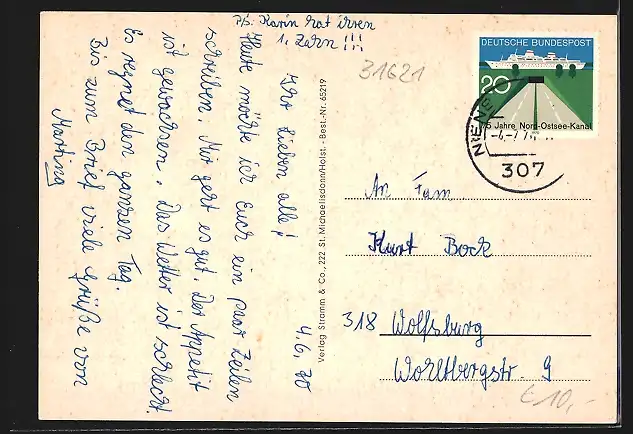 P/S. Karin hat ihren
1. Zahn !!!
31621
4.6.70
Ihr Lieben alle!
Heute möchte ich Euch ein paar Zeilen
schreiben. Mir geht es gut. Der Appetit
ist gewachsen. Das Wetter ist schlecht.
Es regnet den ganzen Tag.
Bis zum Brief viele Grüße von
Martina
Verlag Stramm & Co., 222 St. Michaelisdonn/Holst. - Best.-Nr. 65219
DEUTSCHE BUNDESPOST
20
75 Jahre Nord-Ostsee-Kanal
307
An Fam.
Kurt Bock
318 Wolfsburg
Wohltbergstr. 9
€10,-